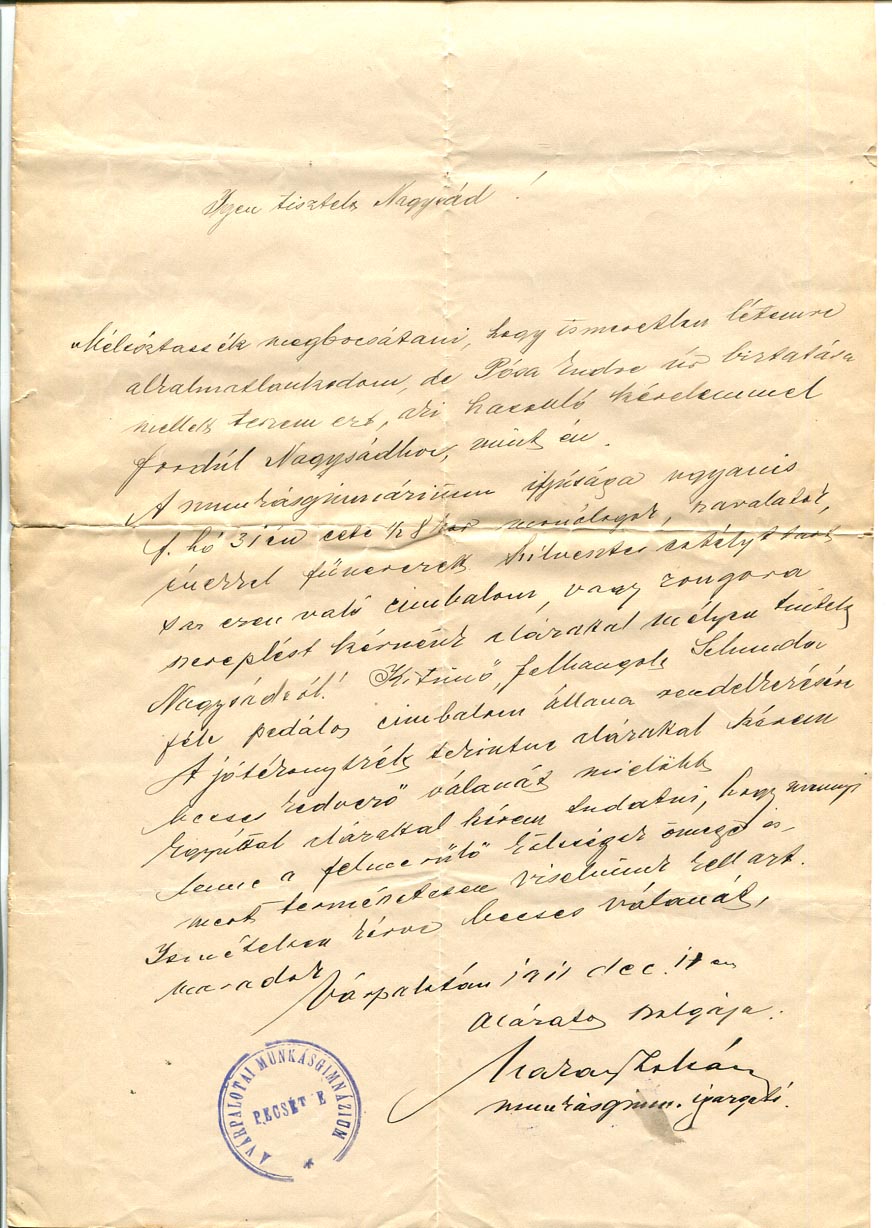 Igen tisztelt Nagysád!
Méltóztassék megbocsátani, hogy ismeretlen létemre
alkalmatlankodom, de Pósa Endre úr biztatása
mellett teszem ezt, aki hasonló kérelemmel
fordúl Nagysádhoz, mint én.
A munkásgimnázium ifjúsága ugyanis
f. hó 31én este ½ 8kor monológok, szavalatok,
énekkel fűszerezett Silvester estélyt tart
s az ezen való cimbalom, vagy zongora
szereplést kérnénk alázattal mélyen tisztelt
Nagysádtól! Kitünő, felhangolt Schunda
féle pedálos cimbalom állana rendelkezésére
A jótékonyczélt tekintve alázattal kérem
becses kedvező válaszát mielőbb
Egyúttal alázattal kérem tudatni, hogy mennyi
lenne a felmerülő költségek összege is,
mert természetesen viselnünk kell azt.
Ismételten kérve becses válaszát,
maradok
Várpalotán 1911 dec.
alázatos szolgája:
Zoltán
munkásgimn. igazgató.
A VÁRPALOTAI MUNKÁSGIMNÁZIUM
PECSÉTJE